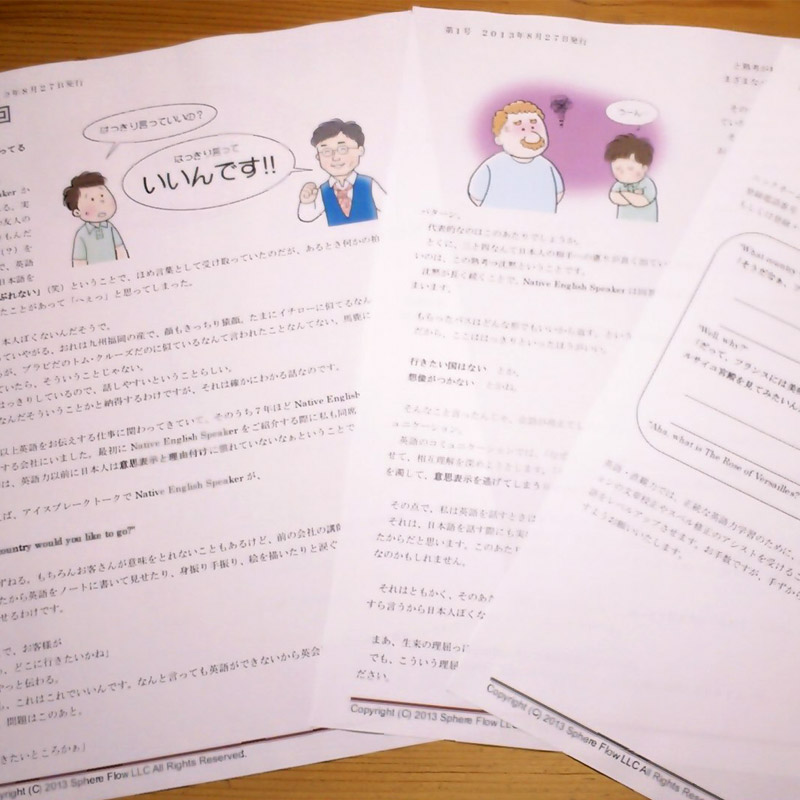 3年8月27日発行
回
はっきり言っていいの？
はっきり言って
いいんです!!
ってる
aker か
る。実
や友人の
もんだ
(？)を
で、英語
日本語を
ぶれない」(笑)ということで、ほめ言葉として受け取っていたのだが、あるとき何かの拍
たことがあって「へぇっ」と思ってしまった。
本人ぽくないんだそうで。
っていやがる。おれは九州福岡の産で、顔もきっちり猿顔。たまにイチローに似てるなん
が、ブラピだのトム・クルーズだのに似ているなんて言われたことなんてない。馬鹿に
ていたら、そういうことじゃない。
はっきりしているので、話しやすいということらしい。
なんだそういうことかと納得するわけですが、それは確かにわかる話なのです。
以上英語をお伝えする仕事に関わってきていて、そのうち７年ほど Native English
する会社にいました。最初に Native English Speaker をご紹介する際に私も同席
は、英語力以前に日本人は意思表示と理由付けに慣れていないなぁということで
ば、アイスブレークトークで Native English Speaker が、
country would you like to go?"
ずねる。もちろんお客さんが意味をとれないこともあるけど、前の会社の講師
たから英語をノートに書いて見せたり、身振り手振り、絵を描いたりと涙ぐ
せるわけです。
で、お客様が
、どこに行きたいかね」
ずっと伝わる。
、これはこれでいいんです。なんと言っても英語ができないから英会
問題はこのあと。
きたいところかぁ」
Copyright (C) 2013 Sphere Flow LLC All Rights Reserved.
第1号 2013年8月27日発行
うーん
パターン。
代表的なのはこのあたりでしょうか。
いのは、この熟考つ沈黙ということです。
沈黙が長く続くことで、Native English Speaker は回答
まいます。
だから、ここははっきりといったほうがいい。
行きたい国はない とか、
想像がつかない とかね。
ュニケーション。
英語のコミュニケーションでは、
せて、相互理解を深めようとします。
を濁して、意思表示を逃げてしまう
その点で、私は英語を話すときは
それは、日本語を話す際にも実
たからだと思います。このあた
なのかもしれません。
それはともかく、そのあ
すら言うから日本人ぽくな
まあ、生来の理屈っ
でも、こういう理屈
ださい。
Copyright (C) 2013 Sphere Flow LLC
と熟考が
まざまな
"What country
「そうだなぁ、フ
"Well why?"
「だって、フランスには美
ルサイユ宮殿を見てみたいん
"Aha, what is The Rose of Versailles?"
英語・語ろ力では、正統な英語力学習のために、
ョンの文章校正やスペル修正のアシストを受けるこ
語をレベルアップさせます。お手数ですが、手ずから
すようお願いいたします。
Copyright (C) 2013 Sphere Flow LLC All Rights Reserved.